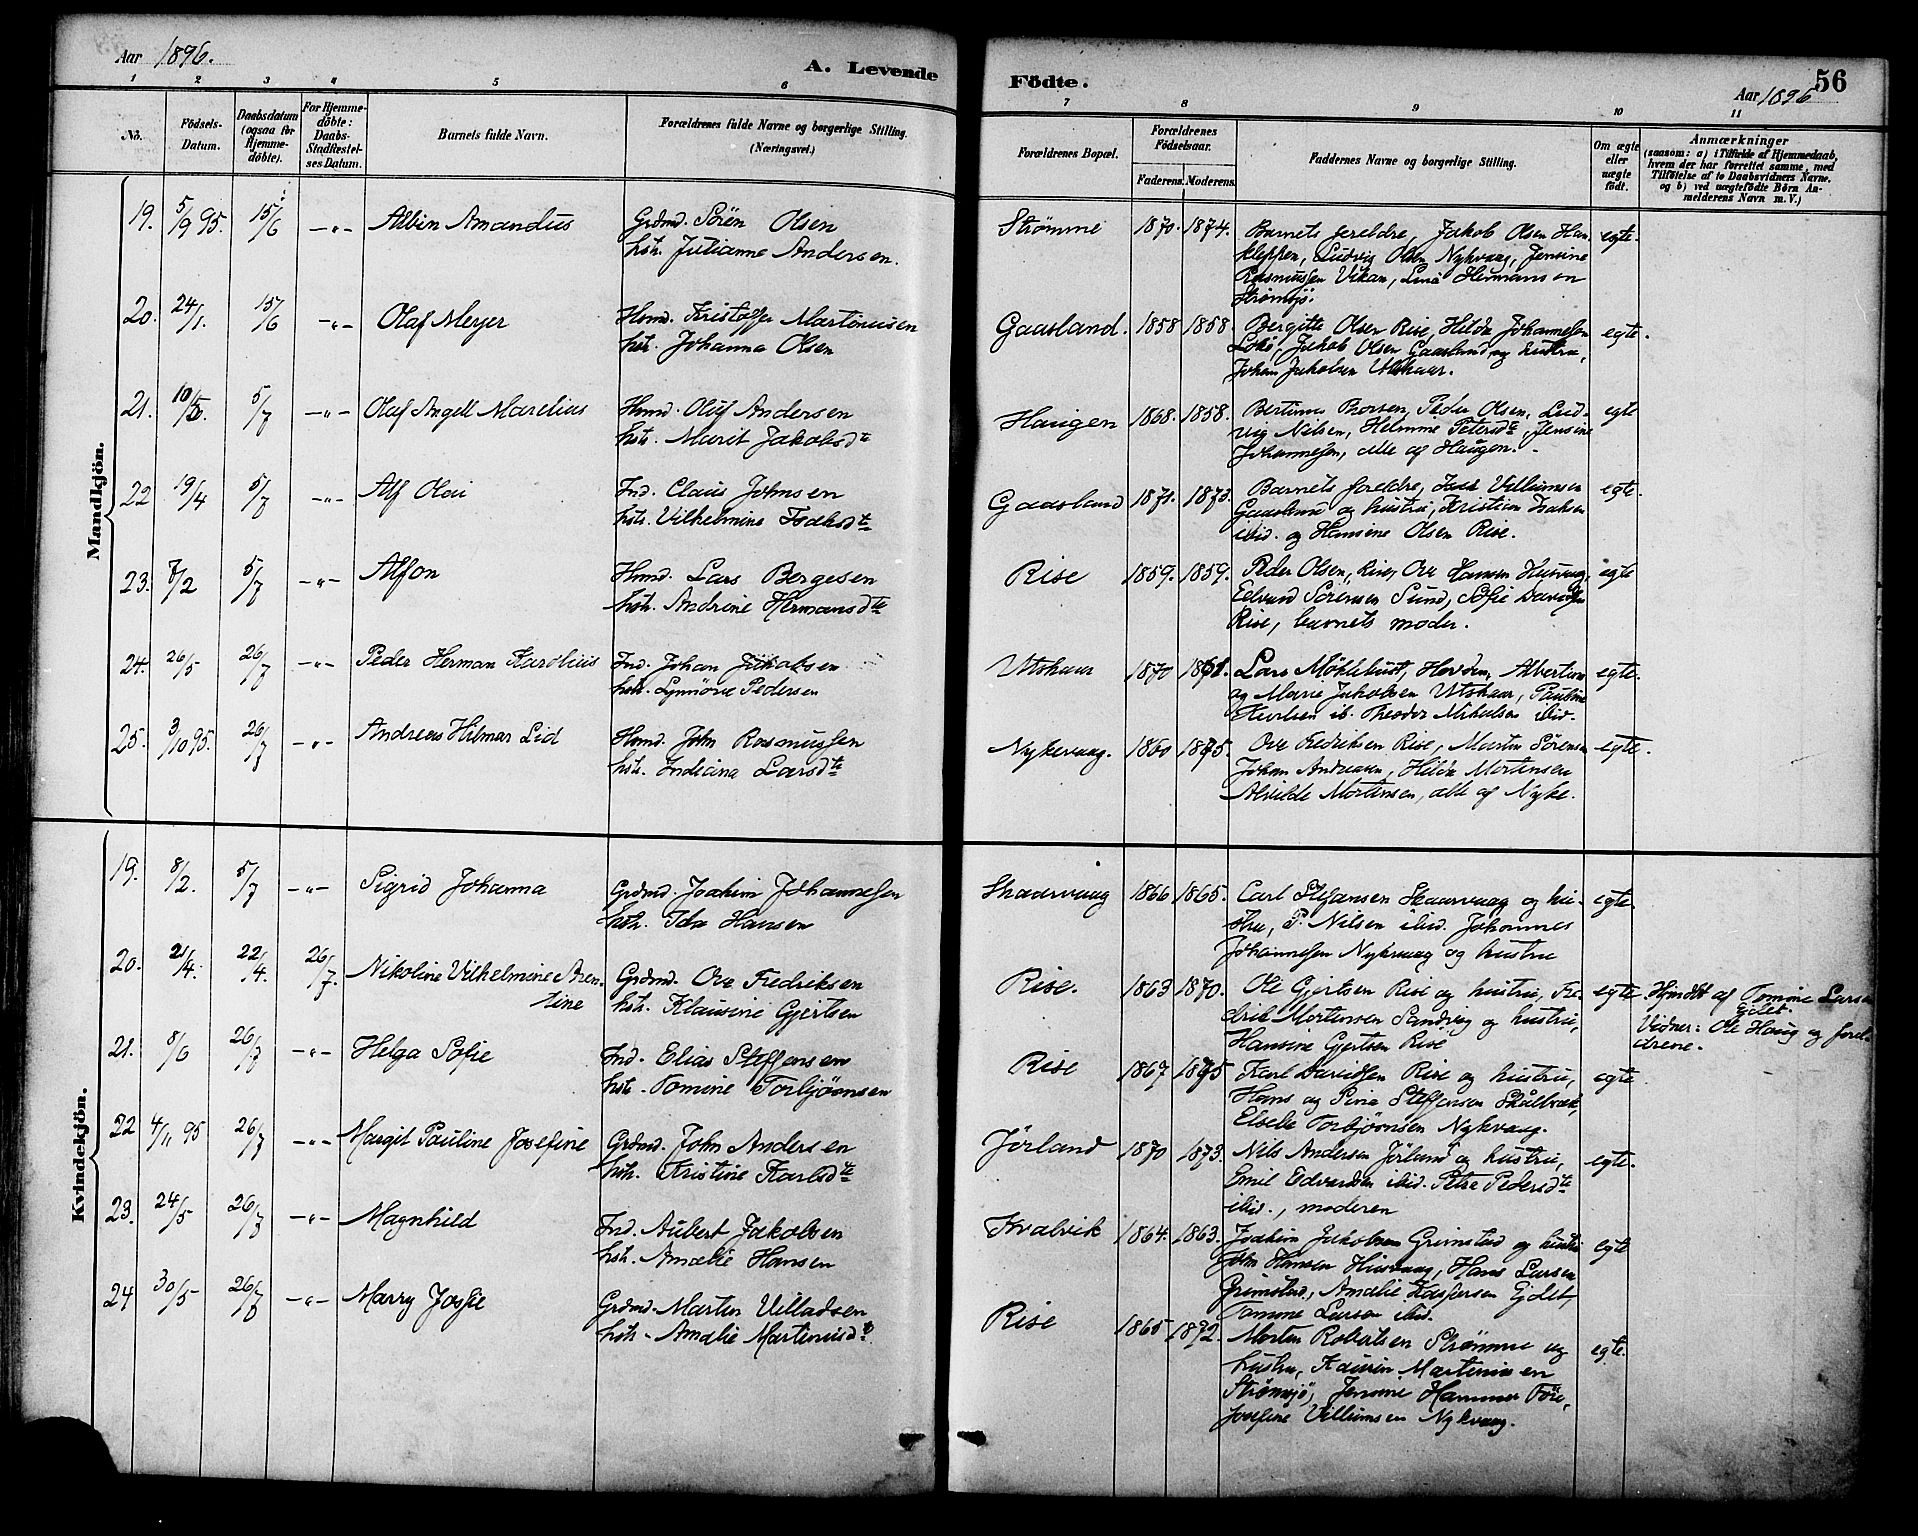 Aar 1896.
A. Levende
Födte.
56
Aar 1896
1 2 3 4 5 6 7 8 9 10 11
No.
Födsels-
Datum.
Daabsdatum
(ogsaa for
Hjemme-
døbte).
For Hjemme-
døbte:
Daabs-
Stadfæstel-
ses Datum.
Barnets fulde Navn.
Forældrenes fulde Navne og borgerlige Stilling.
(Næringsvei.)
Forældrenes Bopæl.
Forældrenes
Födselsaar.
Faderens. Moderens.
Faddernes Navne og borgerlige Stilling.
Om ægte
eller
uægte
födt.
Anmærkninger
(saasom: a) i Tilfælde af Hjemmedaab,
hvem der har forrettet samme, med
Tilföielse af to Daabsvidners Navne,
og b) ved uægtefödte Börn An-
melderens Navn m. V.)
Mandkjön.
19. 5/9 95. 15/6 -"- Albin Amandus Grdmd. Sören Olsen
hstr. Julianne Andersen.
Strømme 1870. 1874. Barnets foreldre, Jakob Olsen Han-
kleppen, Ludvig Olsen Nykvaag, Jensine
Rasmussen Vikan, Lina Hermansen
Strømsjö.
egte.
20. 24/1. 15/6 -"- Olaf Meyer Hsmd. Kristoffer Martinussen
hstr. Johanna Olsen
Gaasland. 1858 1858. Bergitte Olsen Rise, Hilda Johannesen
Jakob Olsen Gaasland og hustru,
Johan Jakobsen Utskaar.
egte.
21. 5/7 -"- Olaf Angell Marelius Hsmd. Oluf Andersen
hstr. Marit Jakobsdt
Haugen 1868. 1858. Peder Olsen, Lud-
vig Nilsen, Helmine Petersdt, Jensine
Johannesen, alle af Haugen.
egte
22 19/4 5/7 -"- Alf Olai Ind. Claus Johnsen
hstr. Vilhelmine Isaksdt
Gaasland 1871. 1873. Barnets foreldre, Isak Villumsen
Gaasland og hustru, Kristian Isaksen
ibid. og Hansine Olsen Rise.
egte.
23. 7/2 5/7 -"- Alfon Hsmd. Lars Bergesen
hstr. Andrine Hermansdt
Rise 1859. 1859. Peder Olsen, Rise, Ove Hansen Husvaag,
Edvard Sörensen Sund, Sofie Davidsen
Rise, barnets moder.
egte
24. 26/5 26/7 -"- Peder Herman Karolius Ind. Johan Jakobsen
hstr. Lynnöve Pedersen
Utskaar 1870 Lars Möklebust, Hovden, Albertine
og Marie Jakobsen Utskaar, Pauline
ib. Theodor Nikolsen ibid.
egte.
25. 3/10 95. 26/7 -"- Andreas Hilmar Lid Hsmd. John Rasmussen
hstr. Indiana Larsdt
Nykevaag. 1860 1875. Ove Fredriksen Rise, Martin Sörensen
Johan Andreasen, Hilda Mortensen
Alvilde Mortensen, alle af Nyke.
egte.
Kvindekjön.
19. 8/2. 5/7 -"- Sigrid Johanna Grdmd. Joakim Johannesen
hstr. Ida Hansen
Skaarvaag 1866 1865. Carl Stefansen Skaarvaag og hu-
stru, P. Nilsen ibid. Johannes
Johannesen Nykvaag og hustru
egte.
20. 21/4. 22/4. 26/7. Nikoline Vilhelmine Aren-
tine
Grdmd. Ove Fredriksen
hstr. Klausine Gjertsen
Rise. 1863 1870. Ole Gjertsen Rise og hustru, Fre-
drik Mortensen Sandvåg og hustru,
Hansine Gjertsen Rise
egte Hjmdöbt af Tomine Larsen
Ejdet.
Vidner: Ole Haug og forel-
drene.
21. 8/6 26/7 -"- Helga Sofie Ind. Elias Steffensen
hstr. Tomine Torbjörnsen
Rise 1867 1875 Karl Davidsen Rise og hustru,
Hans og Pina Steffensen Skålbrek,
Elsebe Torbjörnsen Nykvaag.
egte
22 4/11 95 26/7 -"- Margit Pauline Josefine Grdmd. John Andersen
hstr. Kristine Karlsdt
Jörland 1870 1873. Nils Andersen Jörland og hustru,
Emil Edvardsen ibid. Petra Pedersdt
ibid., moderen
egte.
23. 24/5 26/7 -"- Magnhild Ind. Aubert Jakobsen
hstr. Amalie Hansen
Kvalvik 1864. 1863. Joakim Jakobsen Grimstad og hustru
John Hansen Husvaag, Hans Larsen
Grimstad, Amalie Kaspersen Ejdet,
Tomine Larsen ibid.
egte
24 30/5 26/7 -"- Marry Josfie Grdmd. Martin Villadsen
hstr. Amalie Martinusdt
Rise 1865 1872. Morten Robertsen Strömme og
hustru, Martinussen
Strömsjö, Jensine Hammer Före,
Josefine Villumsen Nykvaag.
egte.